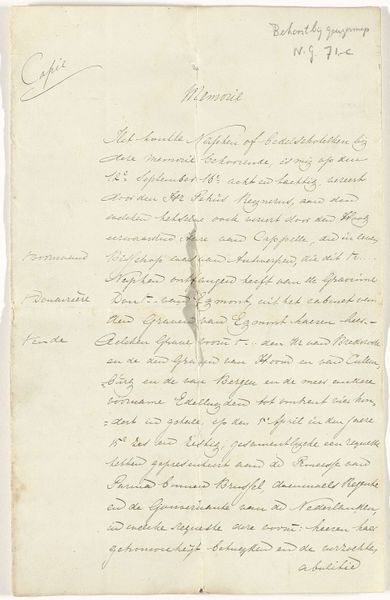 Behoort bij geuzennap
N.G. 71-c
Copie
Memorie
Het houtte Napken of bedelschotelken bij
dese memorie behoorende, is mij op den
12e September 16c acht en tachtig vereert
door den Hr Petrus Reynerus, aan den
welcken hetselve oock vereert door den Hoog
eerwaarden Heere van Cappelle, die in leven
voornaamd
Bisschop was van Antwerpen, die dit v...
Napken ontvangen heeft van de Gravinne
Douairière
Dou... van Egmont, uit het cabinet van
den Graven van Egmont haeren heer
v en de
Adolen Grave voorn... den Hr van Brederode
en de den Graven van Hoorn en van Culen
burg en de van Bergen en de mees andere
voorname Edelluyden tot ontrent vier hon
dert in getale, op den 5e April in den jaere
15c Zes en Zestig, gesamentlycke een requeste
hebben gepresenteert aan de Princesse van
Parma binnen Brussel, doenmaels Regente
en de Gouvernante van de Nederlanden,
in welcke Requeste dese voorn: heeren haer
getrouwigheijt betuygden en de versochten
abolitie